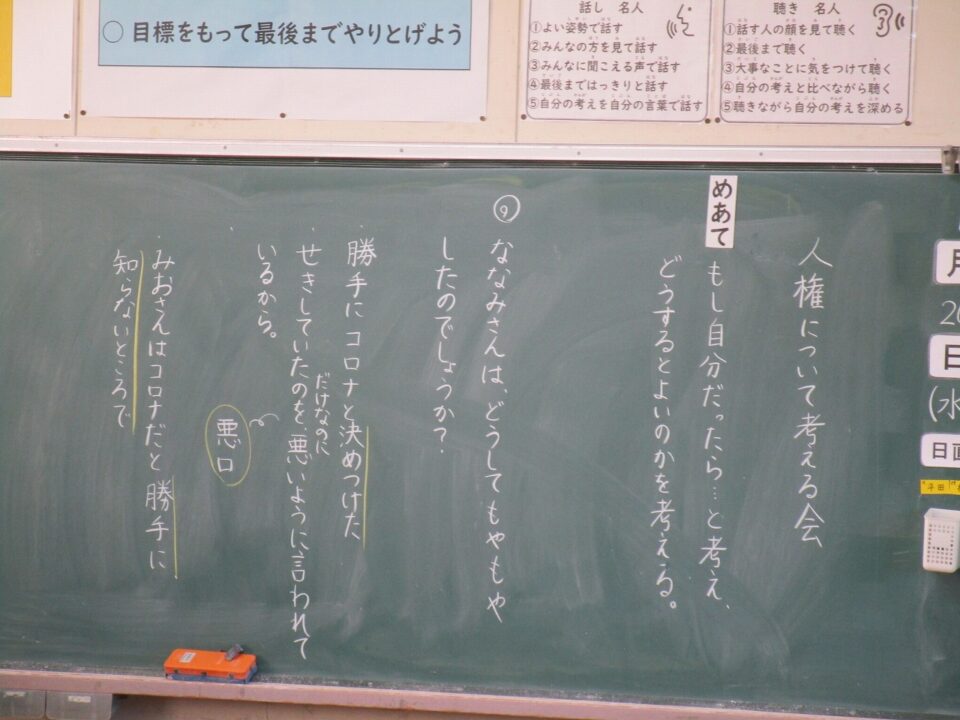 ○ 目標をもって最後までやりとげよう
話し 名人
①よい姿勢で話す
②みんなの方を見て話す
③みんなに聞こえる声で話す
④最後まではっきりと話す
⑤自分の考えを自分の言葉で話す
聴き 名人
①話す人の顔を見て聴く
②最後まで聴く
③大事なことに気をつけて聴く
④自分の考えと比べながら聴く
⑤聴きながら自分の考えを深める
人権について考える会
めあて
もし自分だったら…と考え、
どうするとよいのかを考える。
⑨ ななみさんは、どうしてもやもや
したのでしょうか?
・勝手にコロナと決めつけた
・せきしていただけなのに
のを、悪いように言われて
いるから。
悪口
・みおさんはコロナだと勝手に
知らないところで
月
日
(水
日直